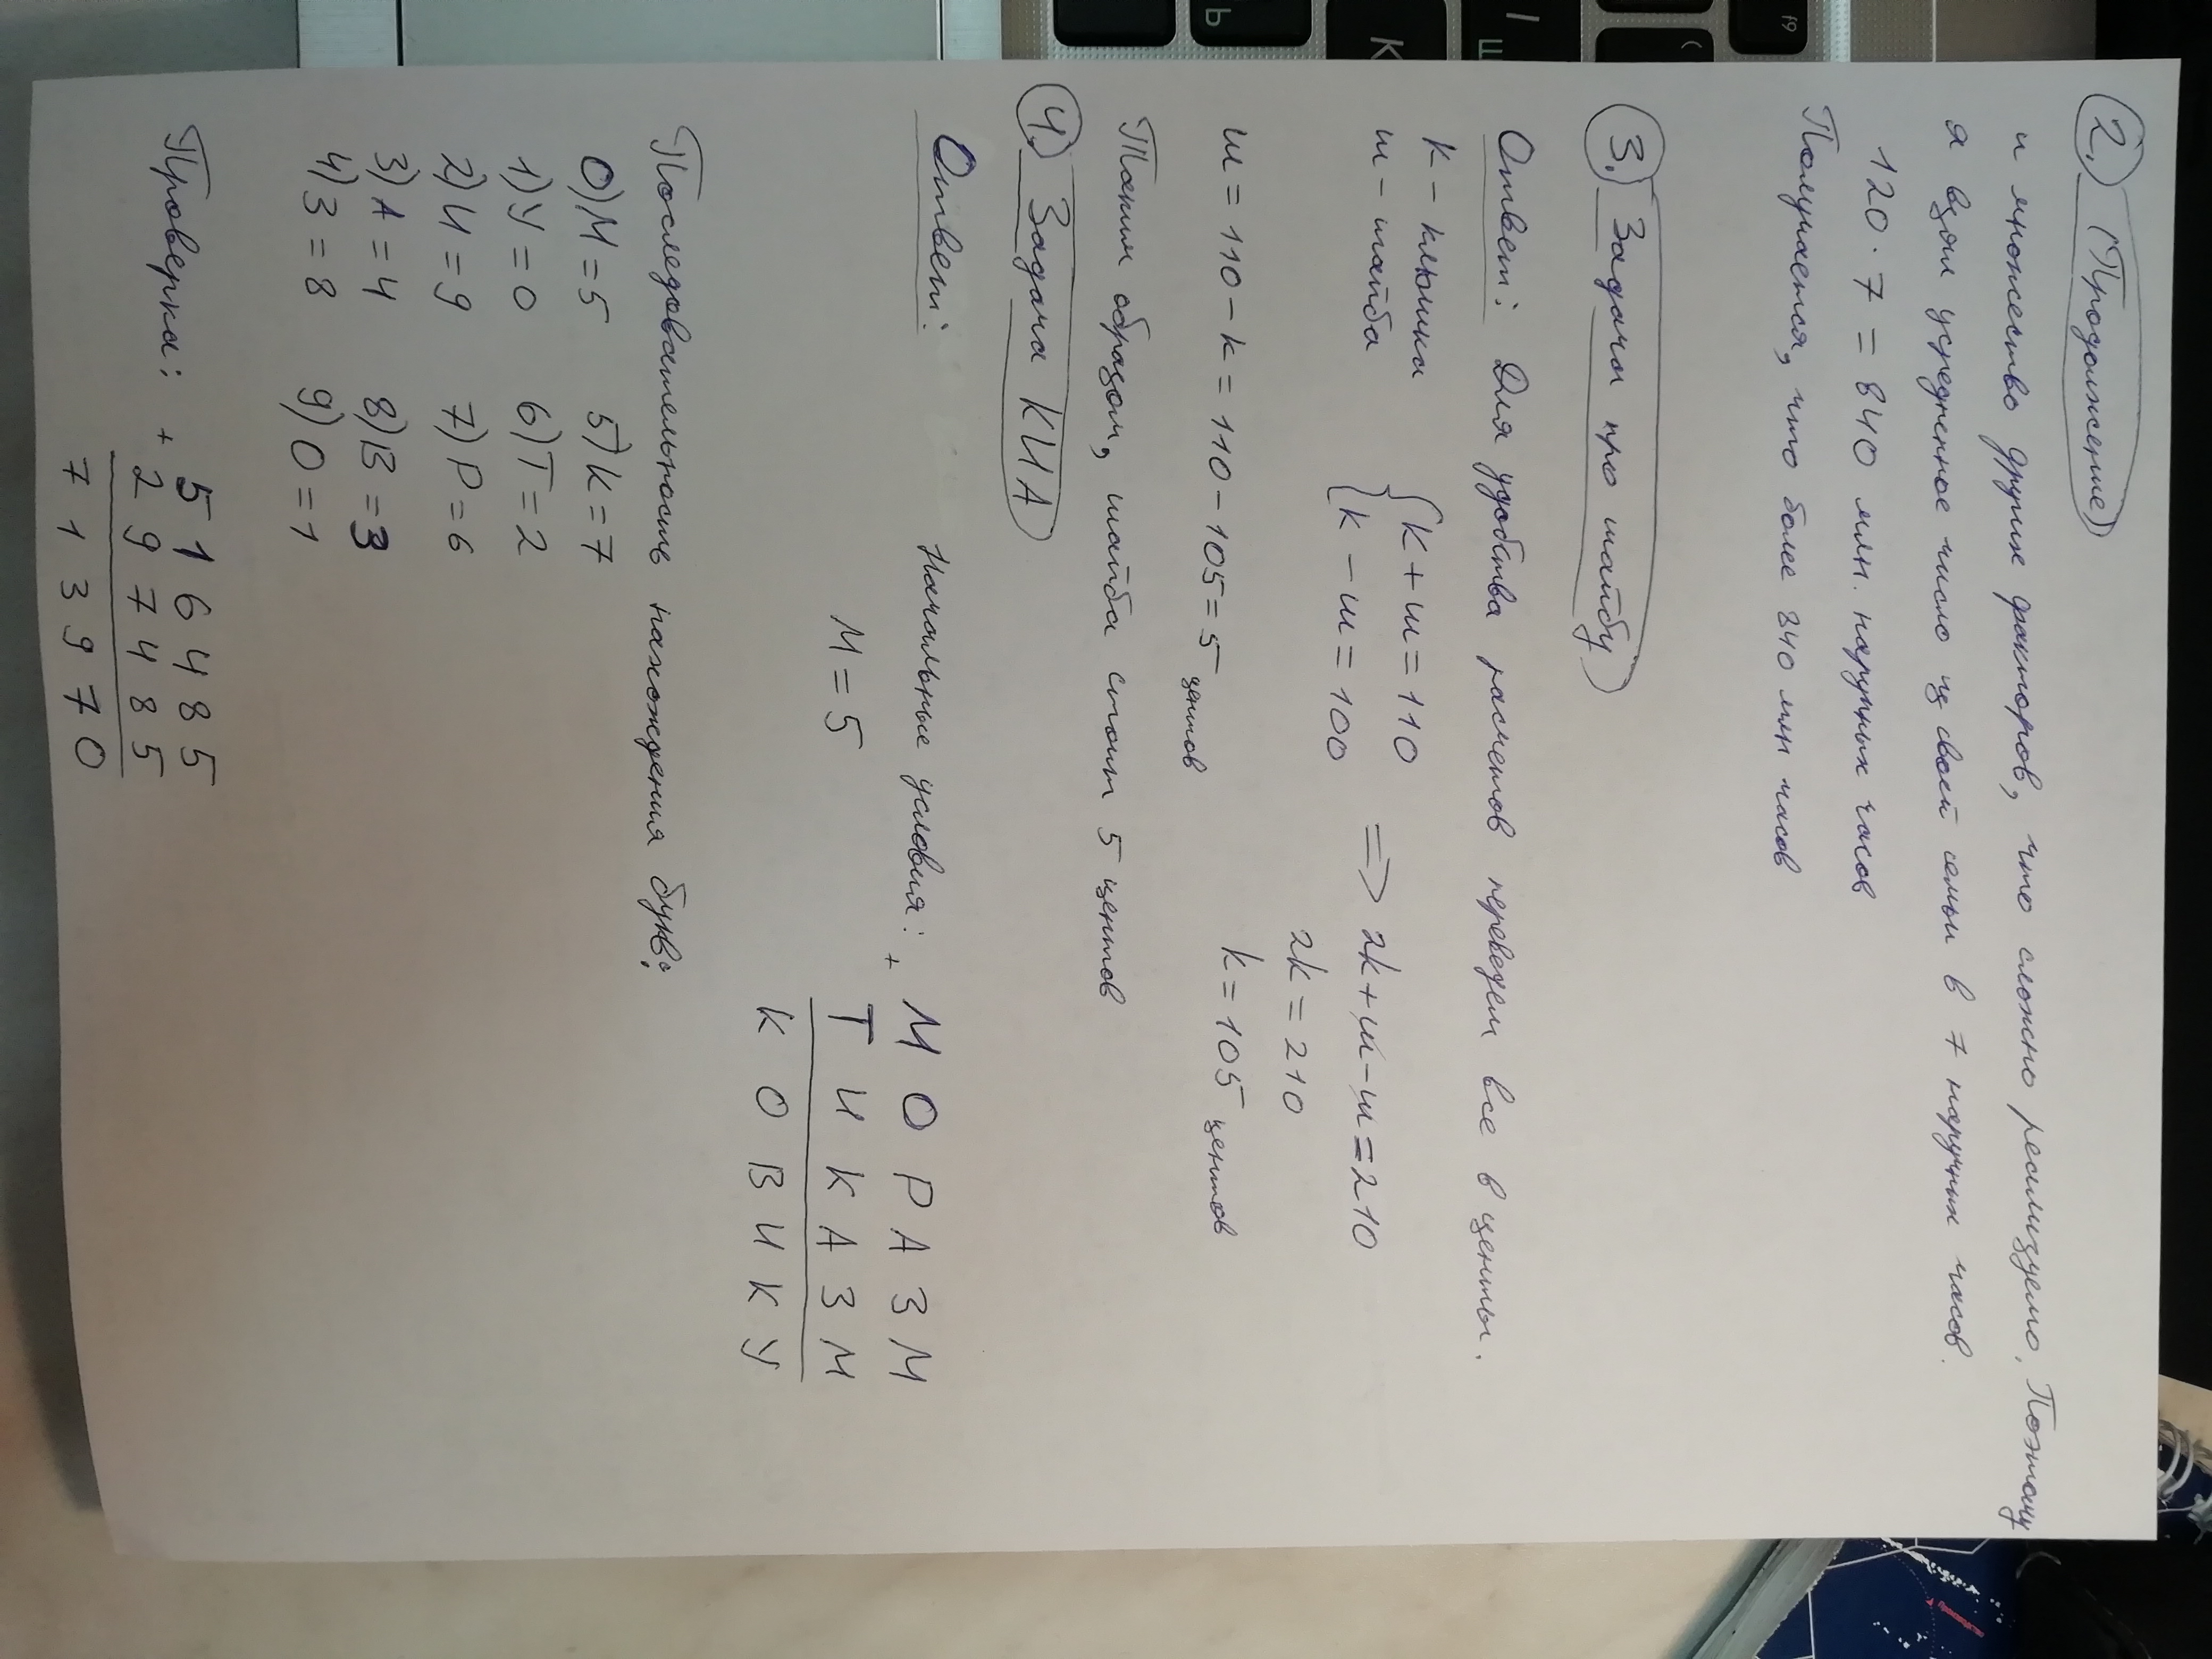 2. (Продолжение)
и множество других факторов, что сложно реализуемо. Поэтому
я взял усредненное число из своей семьи в 7 наручных часов.
120 · 7 = 840 млн. наручных часов
Получается, что более 840 млн часов
f9
(
3. Задача про шайбу
I
Ш
Ответ: Для удобства расчетов переведем все в центы.
К – клюшка
ш – шайба
{ К + ш = 110
К – ш = 100
=> 2К + ш – ш = 210
2К = 210
К = 105 центов
K
Ь
ш = 110 – К = 110 – 105 = 5 центов
Таким образом, шайба стоит 5 центов
4. Задача КИА
Ответ:
Начальные условия:
М = 5
+ М О Р А З М
Т И К А З М
К О В И К У
Последовательность нахождения букв:
0) М = 5 5) К = 7
1) У = 0 6) Т = 2
2) И = 9 7) Р = 6
3) А = 4 8) В = 3
4) З = 8 9) О = 1
Проверка: + 5 1 6 4 8 5
2 9 7 4 8 5
7 1 3 9 7 0